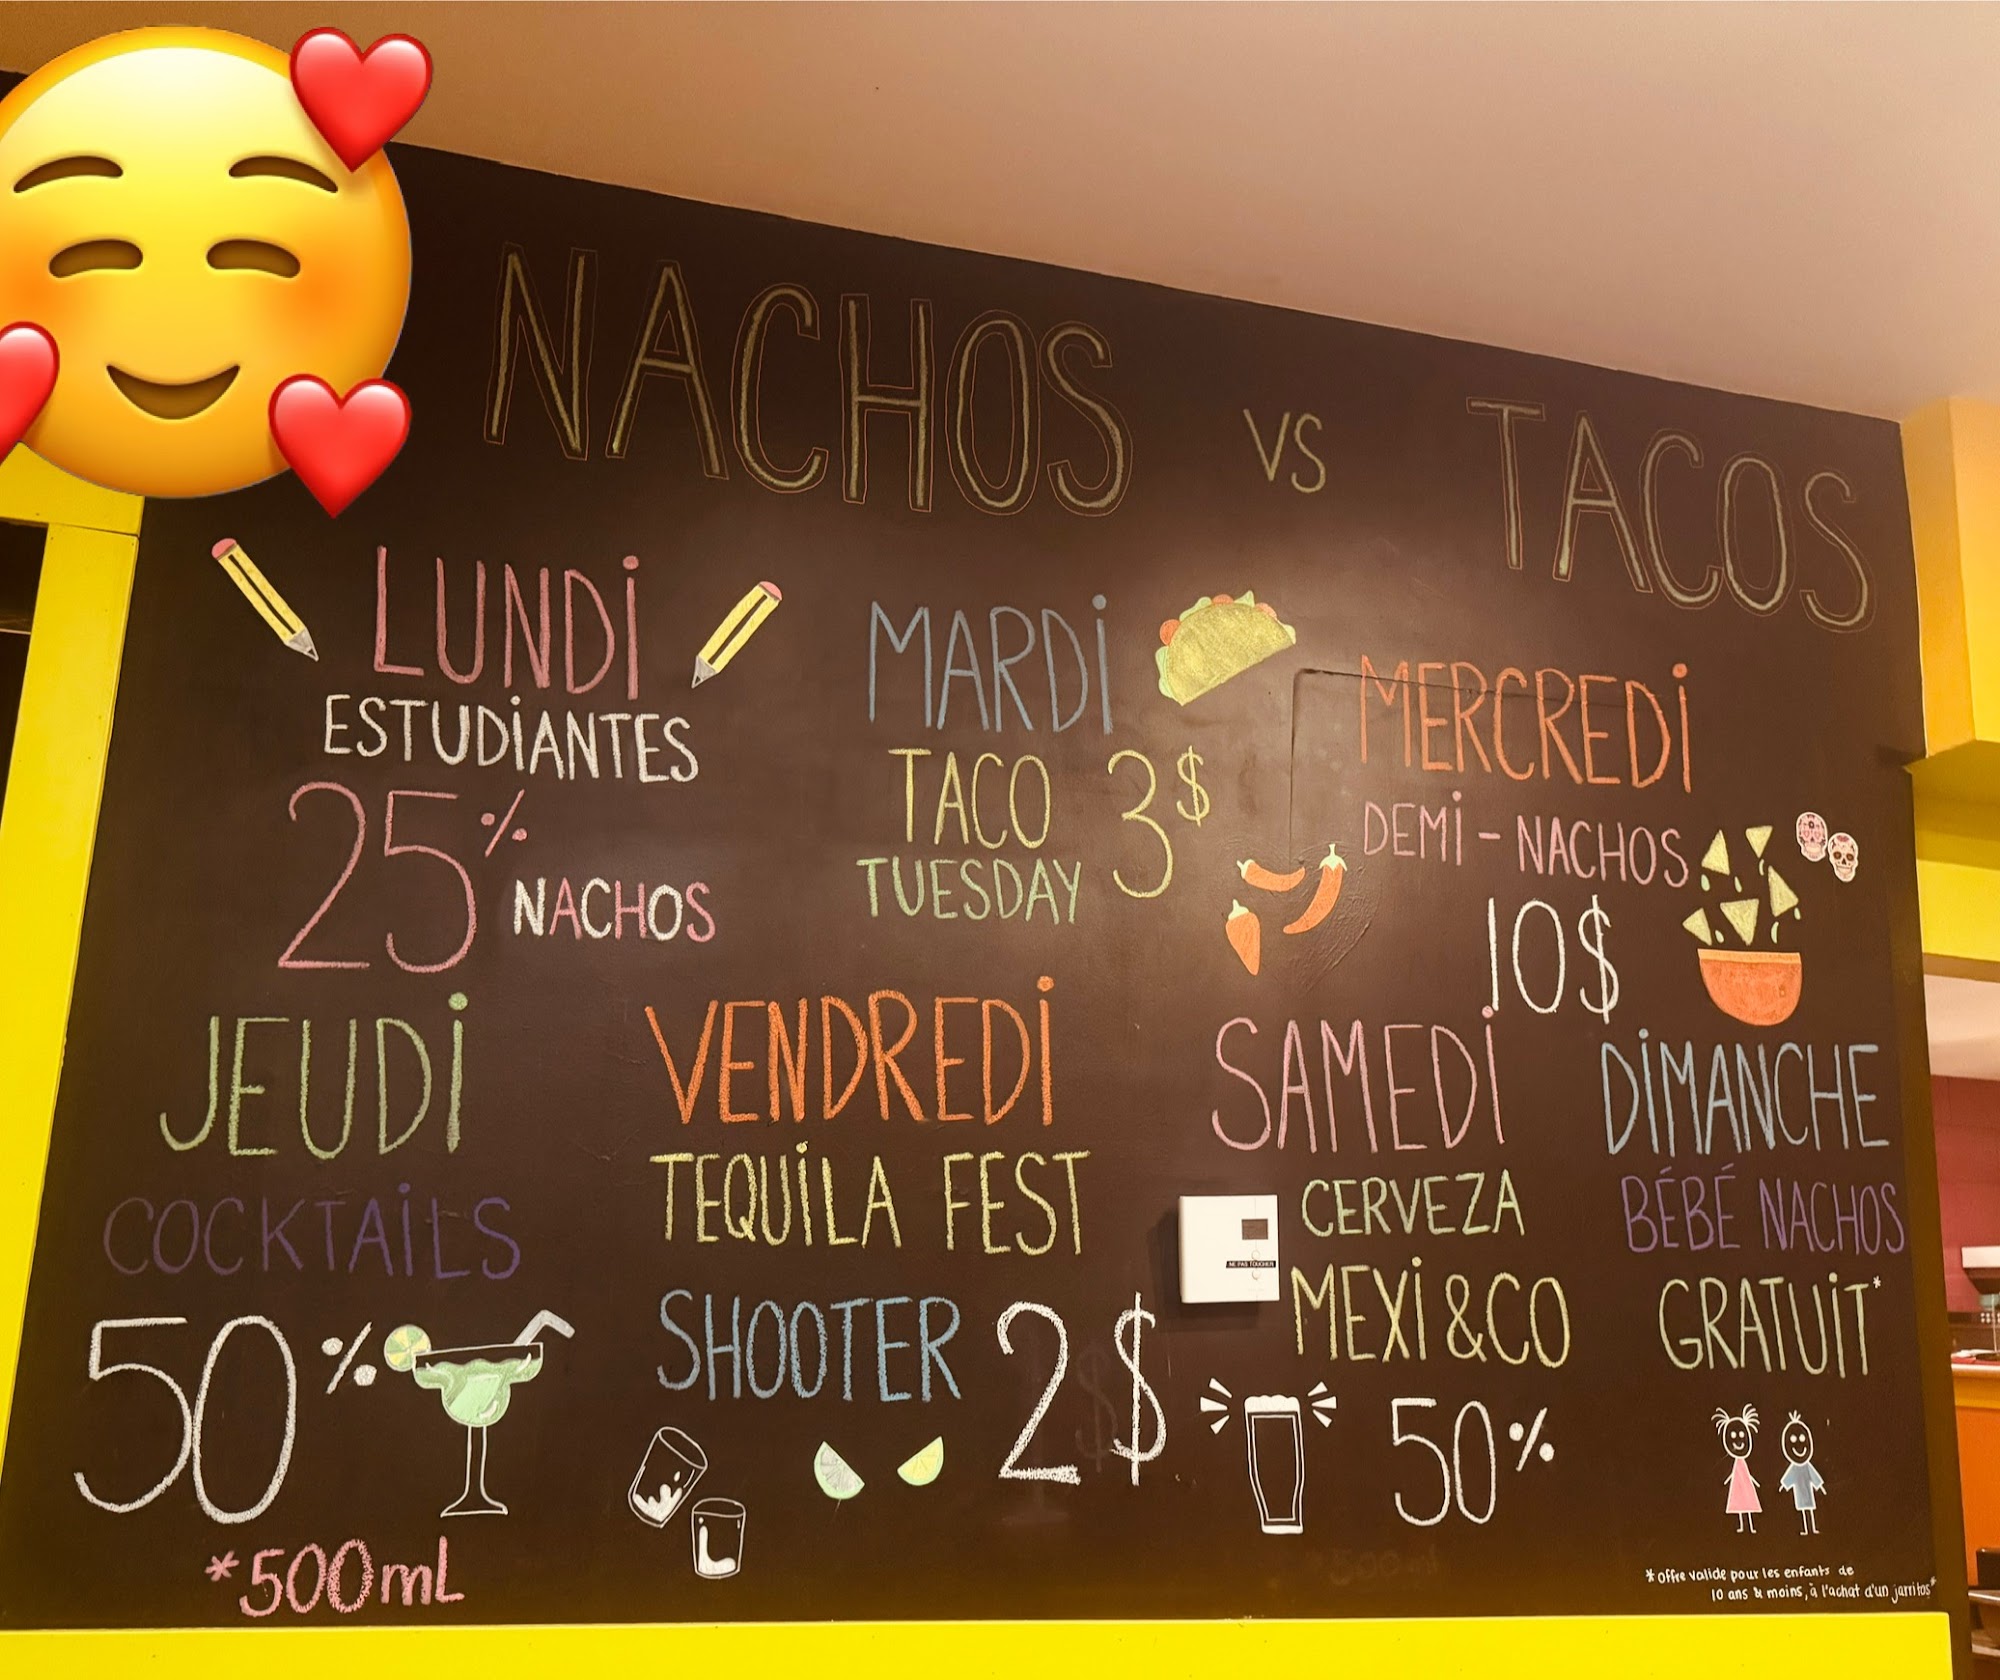 NACHOS VS TACOS
LUNDI
ESTUDIANTES
25% NACHOS
MARDI
TACO
TUESDAY
3$
MERCREDI
DEMI-NACHOS
10$
JEUDI
COCKTAILS
50%
*500mL
VENDREDI
TEQUILA FEST
SHOOTER 2$
SAMEDI
CERVEZA
MEXI&CO
50%
NE PAS TOUCHER
DIMANCHE
BÉBÉ NACHOS
GRATUIT*
*offre valide pour les enfants de
10 ans & moins, à l'achat d'un jarritos*